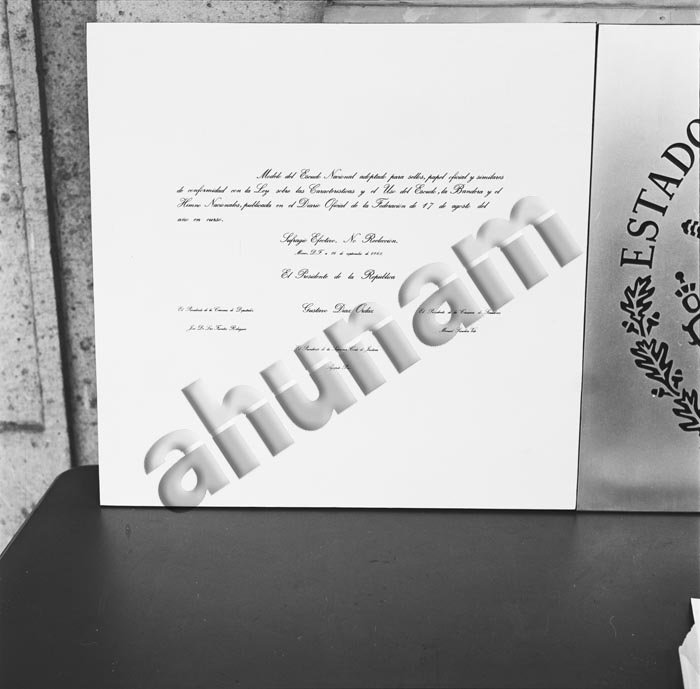 Modelo del Escudo Nacional adoptado para sellos, papel oficial y similares
de conformidad con la Ley sobre las Características y el Uso del Escudo, la Bandera y el
Himno Nacionales, publicada en el Diario Oficial de la Federación de 17 de agosto del
año en curso.
Sufragio Efectivo. No Reelección.
México, D.F. a de septiembre de
El Presidente de la República
Gustavo Díaz Ordaz
El Presidente de la Cámara de Diputados
El Presidente de la Cámara de
José De Las Fuentes Rodríguez
Manuel
El Presidente de la Suprema Corte de Justicia
ESTADO
ahunam